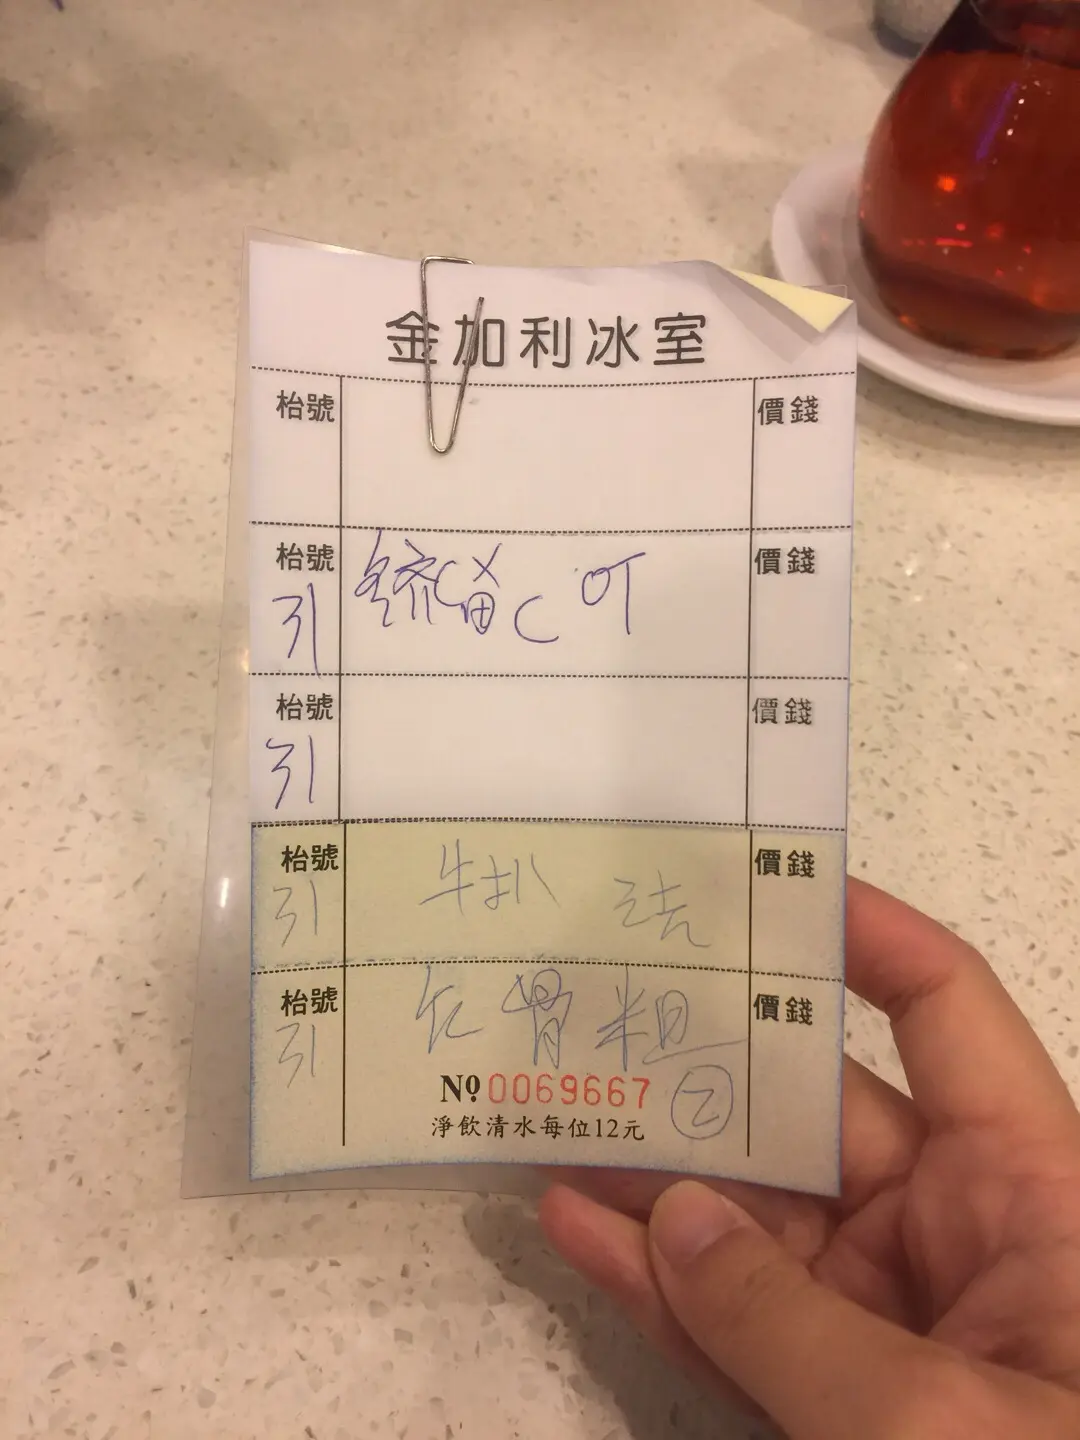 金加利冰室
枱號 價錢
枱號 價錢
31 C OT
枱號 價錢
31
枱號 價錢
31 牛扒
枱號 價錢
31 骨
№ 0069667 2
淨飲清水每位12元